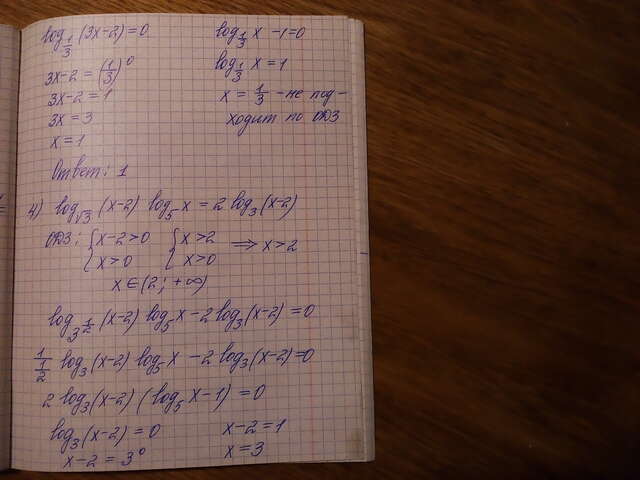 log_{1/3} (3x-2) = 0
3x-2 = (1/3)^0
3x-2 = 1
3x = 3
x = 1
log_{1/3} x - 1 = 0
log_{1/3} x = 1
x = 1/3 - не под-
ходит по ОДЗ
Ответ: 1
4) log_{√3} (x-2) log_5 x = 2 log_3 (x-2)
ОДЗ: { x-2>0 { x>2 ⟹ x>2
x>0 x>0
x ∈ (2; +∞)
log_{3^{1/2}} (x-2) log_5 x - 2 log_3 (x-2) = 0
1/(1/2) log_3 (x-2) log_5 x - 2 log_3 (x-2) = 0
2 log_3 (x-2) (log_5 x - 1) = 0
log_3 (x-2) = 0
x-2 = 3^0
x-2 = 1
x = 3